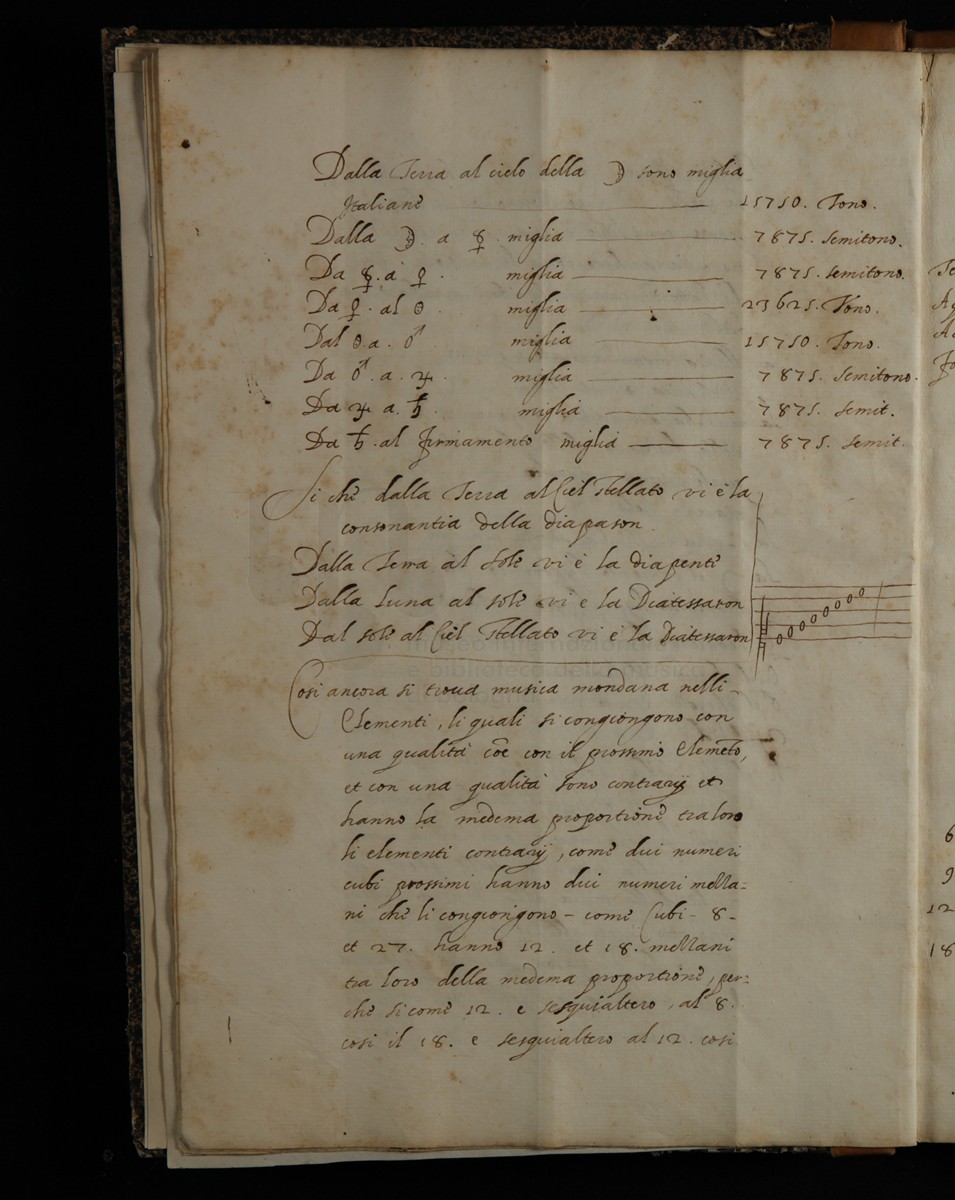 Dalla Terra al cielo della ☽ sono miglia
Italiane 15750. Tono.
Dalla ☽. a ☿. miglia 7875. semitono.
Da ☿. a ♀. miglia 7875. semitono.
Da ♀. al ☉. miglia 23625. Tono.
Dal ☉. a. ♂. miglia 15750. Tono.
Da ♂. a. ♃. miglia 7875. Semitono.
Da ♃ a. ♄. miglia 7875. semit.
Da ♄. al firmamento miglia 7875. semit.
Si chè dalla Terra al Ciel Stellato vi è la
consonantia della diapason.
Dalla Terra al Sole vi è la diapente
Dalla luna al sole vi e la Diatessaron
Dal sole al Ciel Stellato vi è la Diatessaron
Cosi ancora si troua musica mondana nelli
Elementi, li quali si congiongono con
una qualità cōe con il prossimo Elemēto,
et con una qualità sono contrarij et
hanno la medema proportione tra loro
li elementi contrarij, come dui numeri
cubi prossimi hanno dui numeri mella=
ni che li congiongono - come Cubi - 8 -
et 27. hanno 12. et 18. mellani
tra loro della medema proportione, per=
che si come 12. e sesquialtero, al 8.
cosi il 18. e sesquialtero al 12. cosi
6
9
12
18